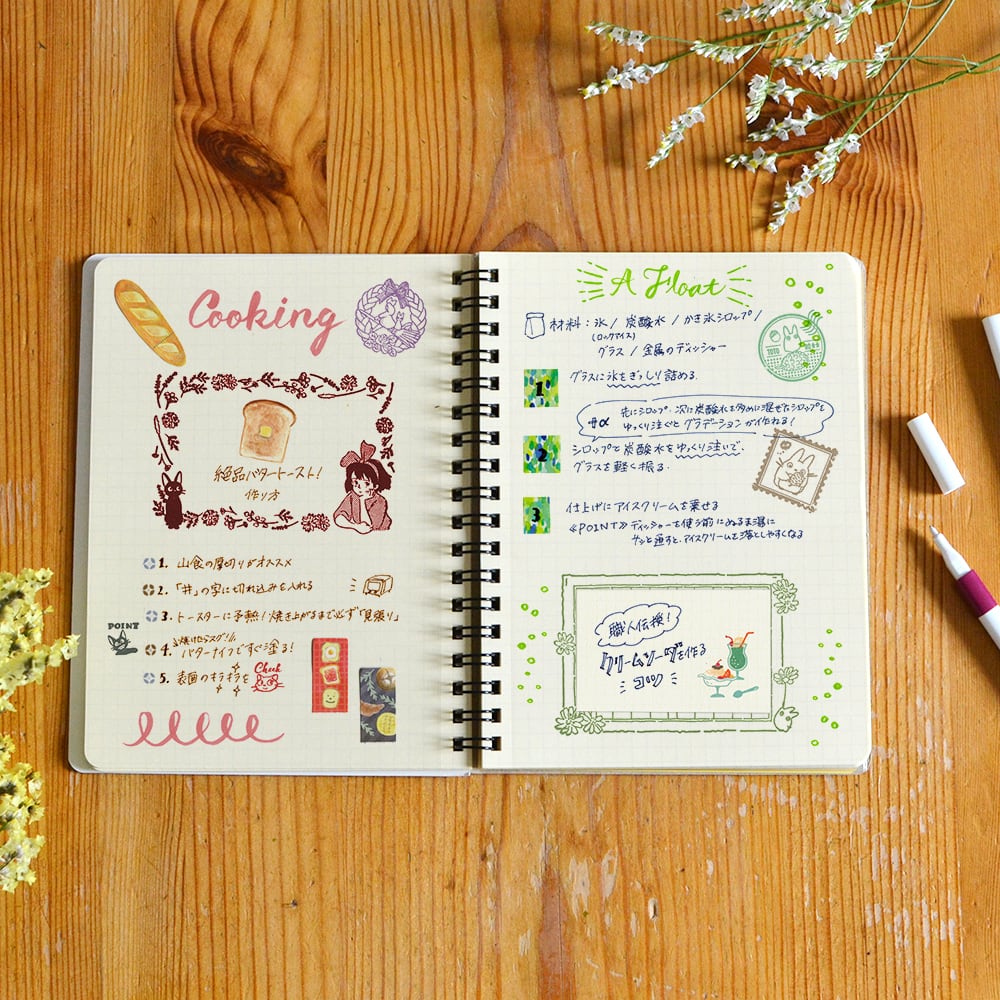 Cooking
絶品バタートースト!
作り方
1. 山食の厚切りがオススメ
2. 「井」の字に切れ込みを入れる
3. トースターに予熱!焼き上がるまで必ず「見張り」
POINT
焼けたらスグ!!
4. バターナイフですぐ塗る!
5. 表面のキラキラを
Check
A Float
材料:氷/炭酸水/かき氷シロップ/
(ロックアイス)
グラス/金属のディッシャー
1 グラスに氷をぎっしり詰める.
+α 先にシロップ、次に炭酸水を多めに混ぜたシロップを
ゆっくり注ぐとグラデーションが作れる!
2 シロップと炭酸水をゆっくり注いで、
グラスを軽く振る.
3 仕上げにアイスクリームを乗せる
≪POINT≫ディッシャーを使う前にぬるま湯に
サッと通すと、アイスクリームを落としやすくなる
職人伝授!
クリームソーダを作る
コツ